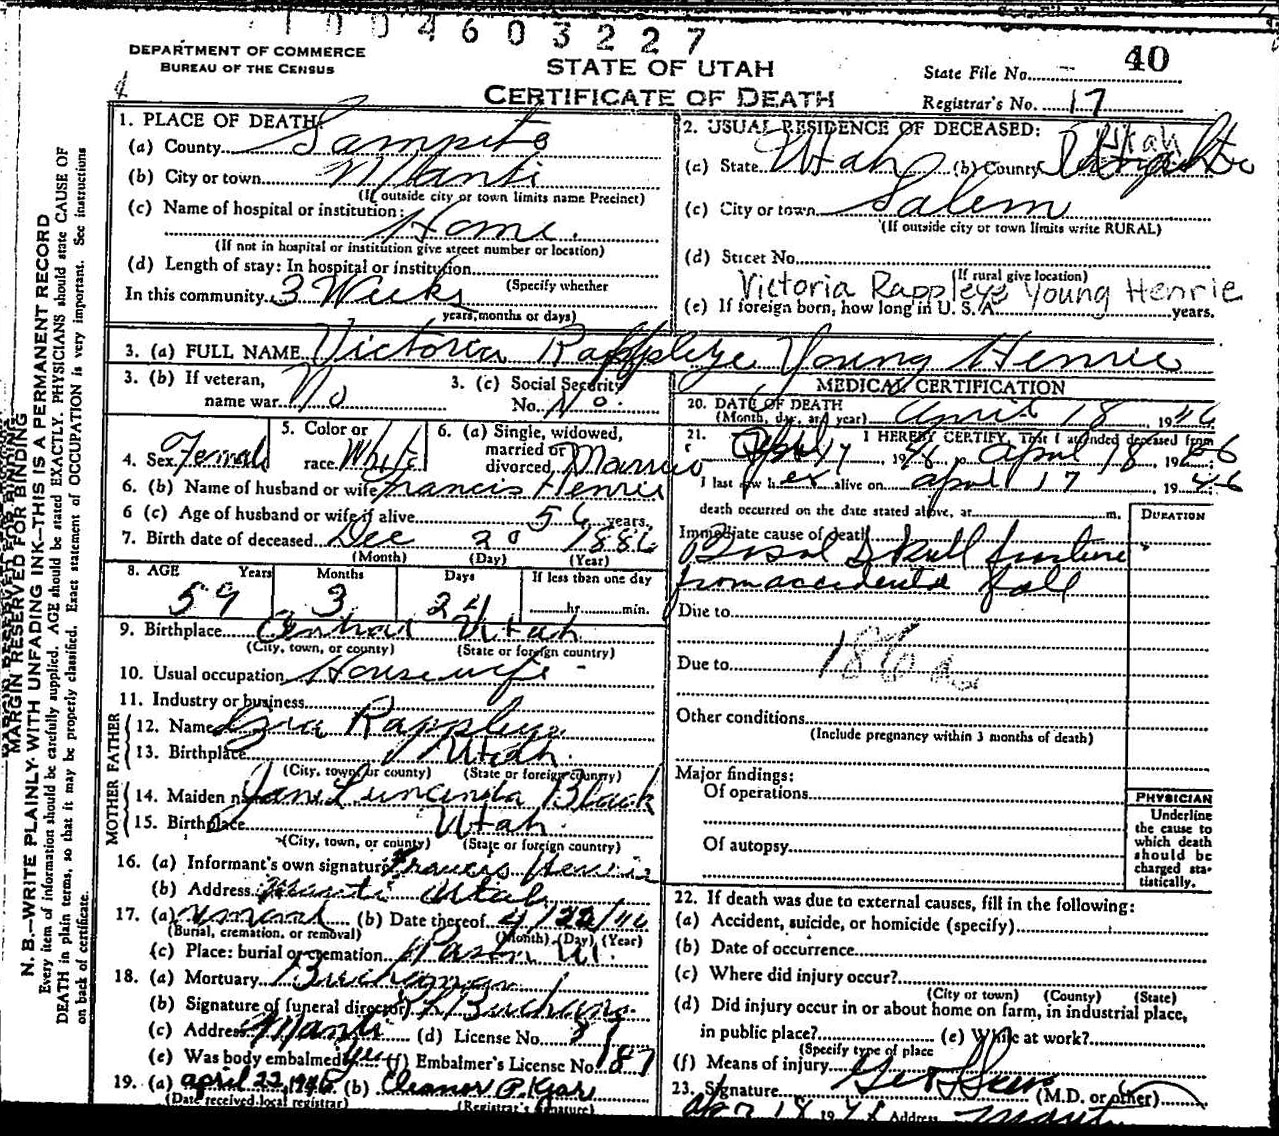 1004603227
DEPARTMENT OF COMMERCE
BUREAU OF THE CENSUS
STATE OF UTAH
CERTIFICATE OF DEATH
40
State File No.
Registrar's No. 17
1. PLACE OF DEATH:
(a) County Sanpete
(b) City or town Manti
(If outside city or town limits name Precinct)
(c) Name of hospital or institution:
Home.
(If not in hospital or institution give street number or location)
(d) Length of stay: In hospital or institution
(Specify whether
In this community 3 Weeks
years, months or days)
2. USUAL RESIDENCE OF DECEASED:
Utah
(a) State Utah (b) County
(c) City or town Salem
(If outside city or town limits write RURAL)
(d) Street No.
(If rural give location)
Victoria Rappleye Young Henrie
(e) If foreign born, how long in U. S. A. years.
3. (a) FULL NAME Victoria Rappleye Young Henrie
3. (b) If veteran,
name war No
3. (c) Social Security
No. No.
4. Sex Female
5. Color or
race White
6. (a) Single, widowed,
married or
divorced Married
6. (b) Name of husband or wife Francis Henrie
6 (c) Age of husband or wife if alive 56 years.
7. Birth date of deceased Dec 20 1886
(Month) (Day) (Year)
8. AGE Years Months Days If less than one day
59 3 hr. min.
9. Birthplace Central Utah
(City, town, or county) (State or foreign country)
10. Usual occupation Housewife
11. Industry or business
FATHER
12. Name Ezra Rappleye
13. Birthplace Utah.
(City, town, or county) (State or foreign country)
MOTHER
14. Maiden name Jane Luncinda Black
15. Birthplace Utah.
(City, town, or county) (State or foreign country)
16. (a) Informant's own signature Francis Henrie
(b) Address Manti Utah
17. (a) (b) Date thereof 4/22/46
(Burial, cremation, or removal) (Month) (Day) (Year)
(c) Place: burial or cremation Ut.
18. (a) Mortuary Buchanan
(b) Signature of funeral director Buchanan
(c) Address Manti (d) License No.
(e) Was body embalmed Yes (f) Embalmer's License No. 187
19. (a) april 22, 1946 (b) Eleanor P. Kjar
(Date received local registrar) (Registrar's signature)
MEDICAL CERTIFICATION
20. DATE OF DEATH
(Month, day, and year) April 18 1946
21. I HEREBY CERTIFY, That I attended deceased from
April 18
I last saw her alive on april 17 1946
death occurred on the date stated above, at m.
DURATION
Immediate cause of death
Basal Skull fracture
from accidental fall
Due to
Due to 186a
Other conditions
(Include pregnancy within 3 months of death)
Major findings:
Of operations
Of autopsy
PHYSICIAN
Underline
the cause to
which death
should be
charged sta-
tistically.
22. If death was due to external causes, fill in the following:
(a) Accident, suicide, or homicide (specify)
(b) Date of occurrence
(c) Where did injury occur?
(City or town) (County) (State)
(d) Did injury occur in or about home on farm, in industrial place,
in public place? (e) While at work?
(Specify type of place
(f) Means of injury
23. Signature (M.D. or other)
Address Manti
MARGIN RESERVED FOR BINDING
N. B.—WRITE PLAINLY WITH UNFADING INK—THIS IS A PERMANENT RECORD
Every item of information should be carefully supplied. AGE should be stated EXACTLY. PHYSICIANS should state CAUSE OF
DEATH in plain terms, so that it may be properly classified. Exact statement of OCCUPATION is very important. See instructions
on back of certificate.